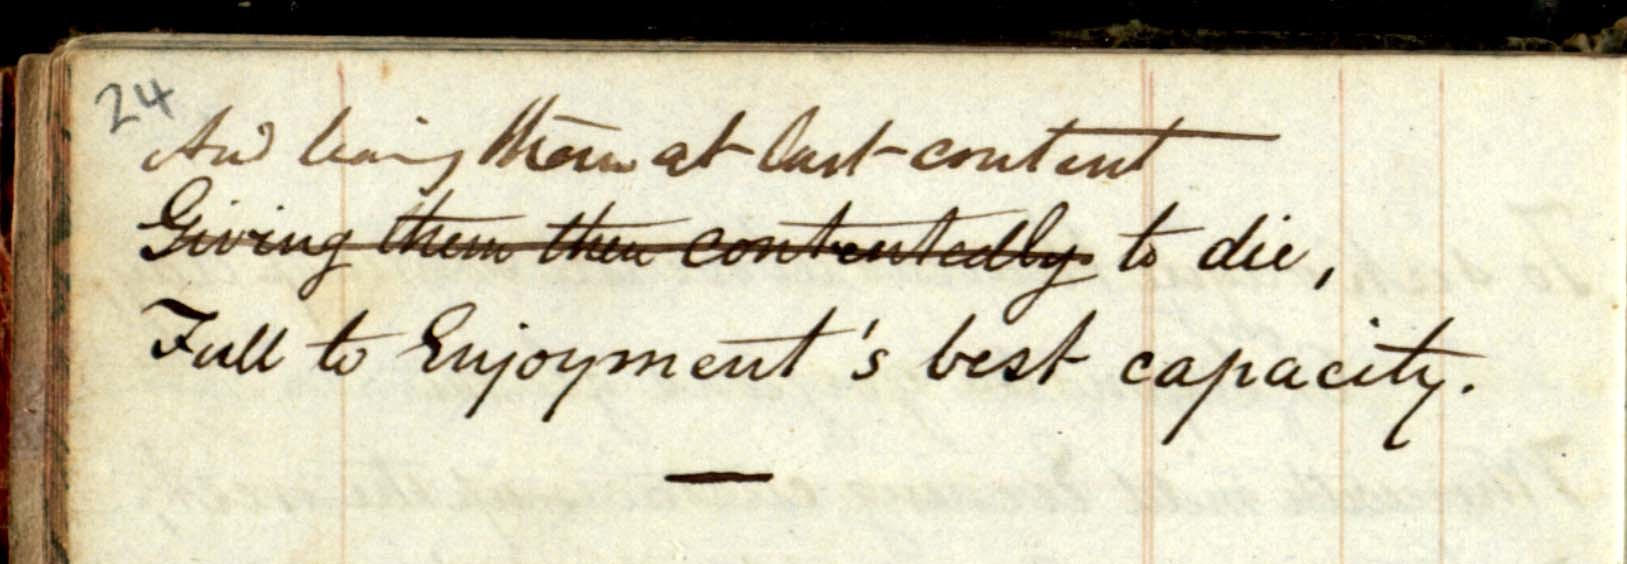 24
And leaving them at last content
Giving them then contentedly to die,
Full to Enjoyment's best capacity.